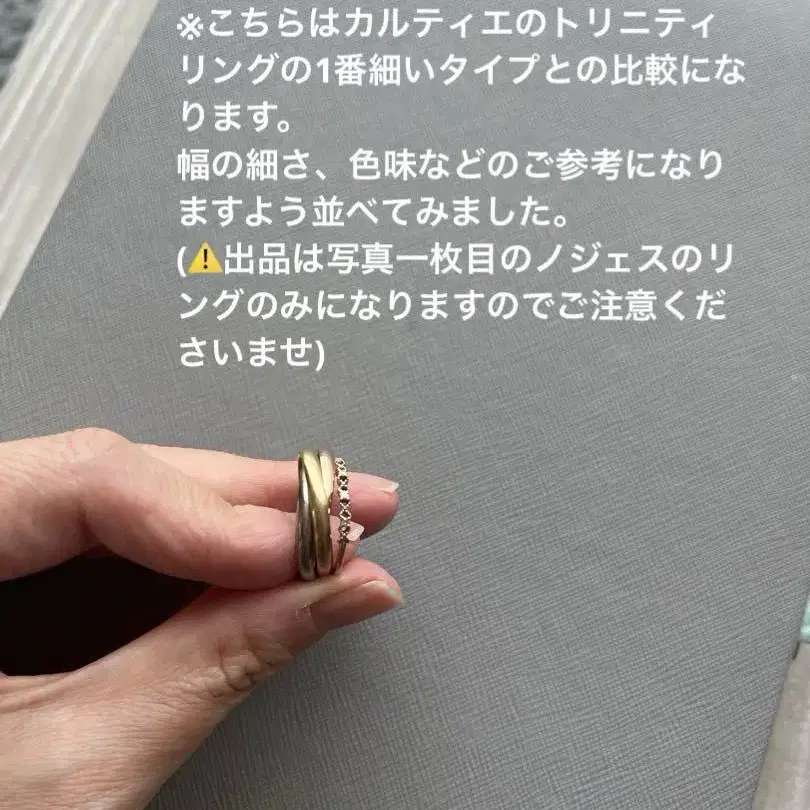 ※こちらはカルティエのトリニティ
リングの1番細いタイプとの比較にな
ります。
幅の細さ、色味などのご参考になり
ますよう並べてみました。
(⚠️出品は写真一枚目のノジェスのリ
ングのみになりますのでご注意くだ
さいませ)